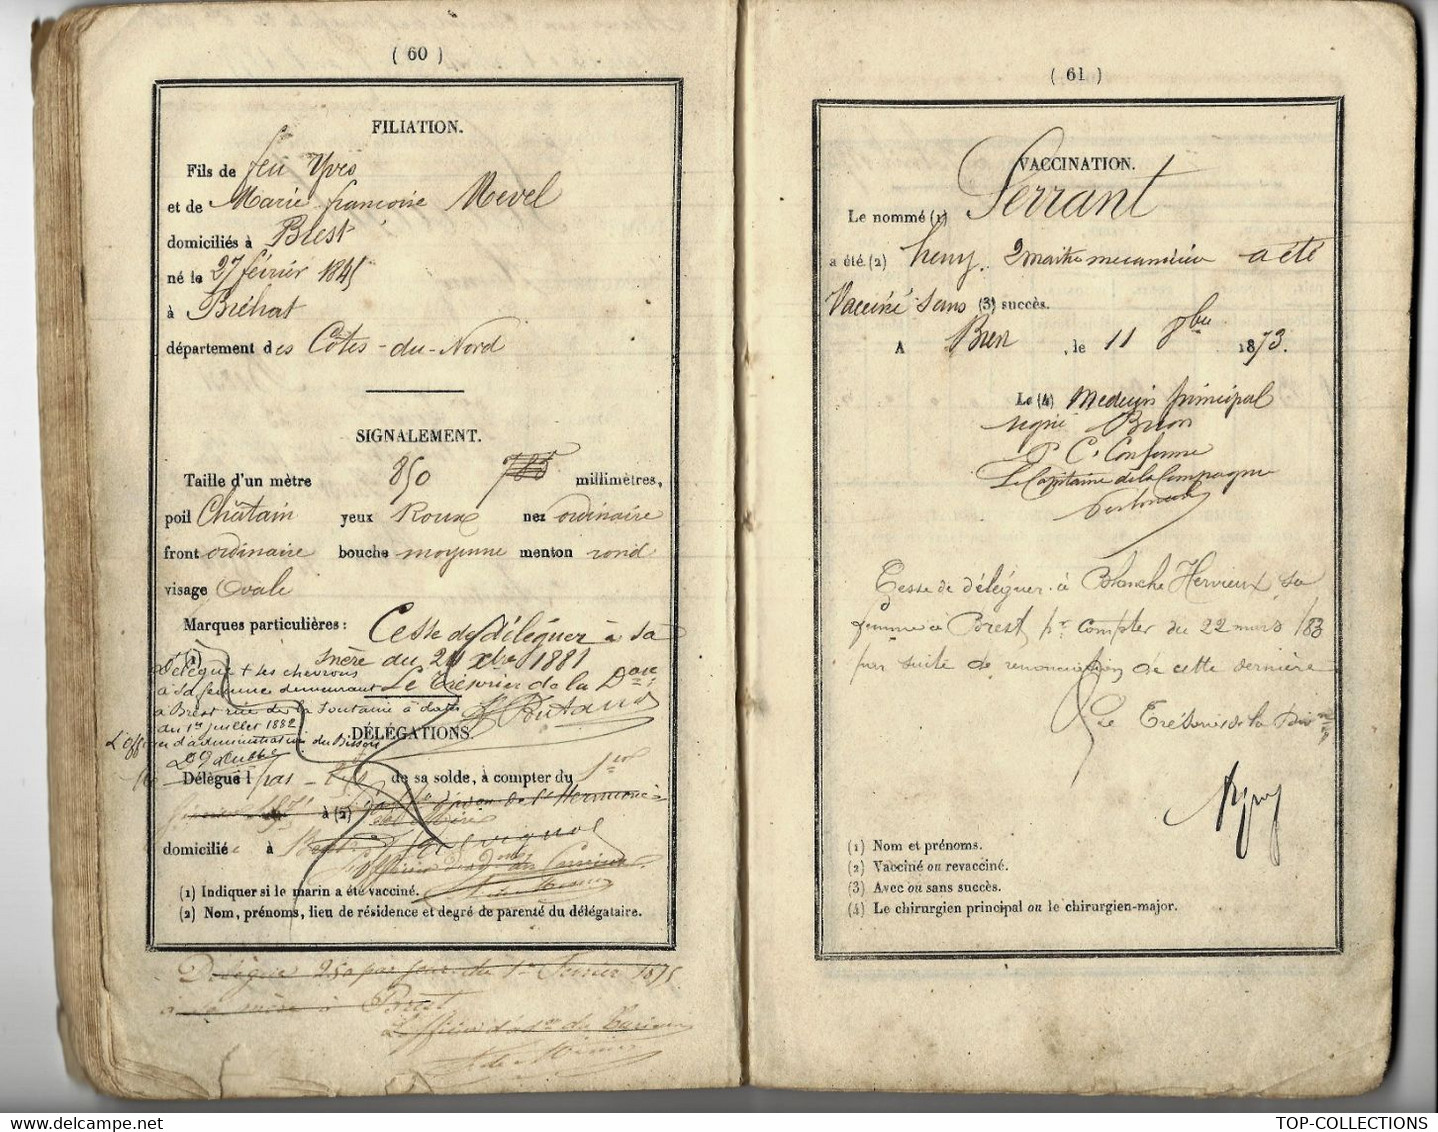 ( 60 )
FILIATION.
Fils de feu Yves
et de Marie françoise Mevel
domiciliés à Brest
né le 27 février 1845
à Bréhat
département des Côtes-du-Nord
SIGNALEMENT.
Taille d'un mètre 850 785 millimètres,
poil Châtain yeux Roux nez ordinaire
front ordinaire bouche moyenne menton rond
visage Ovale
Marques particulières : Cesse de déléguer à sa
mère du 21 Xbre 1881
Le Trésorier de la Don
(1)
Délègue + les chevrons
à sa femme demeurant
à Brest rue de la fontaine à dater
du 1er juillet 1882
L'officier d'administration du Bisson
DÉLÉGATIONS.
Délègue 1 par de sa solde, à compter du 1er
à (2)
domicilié à
(1) Indiquer si le marin a été vacciné.
(2) Nom, prénoms, lieu de résidence et degré de parenté du délégataire.
Délègue 250 par jour du 1er Février 1875
à sa mère à Brest
L'officier d'adon du
( 61 )
VACCINATION.
Le nommé (1) Serrant
a été (2) henry 2 maitre mecanicien a été
Vacciné sans (3) succès.
A Brest, le 11 8bre 1873.
Le (4) Medecin principal
signé
P. C. Conforme
Le Capitaine de la Compagnie
Cesse de déléguer à Blanche Hervieux, sa
femme à Brest pr compter du 22 mars /83
par suite de renonciation de cette dernière
Le Trésorier de la Divon
(1) Nom et prénoms.
(2) Vacciné ou revacciné.
(3) Avec ou sans succès.
(4) Le chirurgien principal ou le chirurgien-major.
TOP-COLLECTIONS